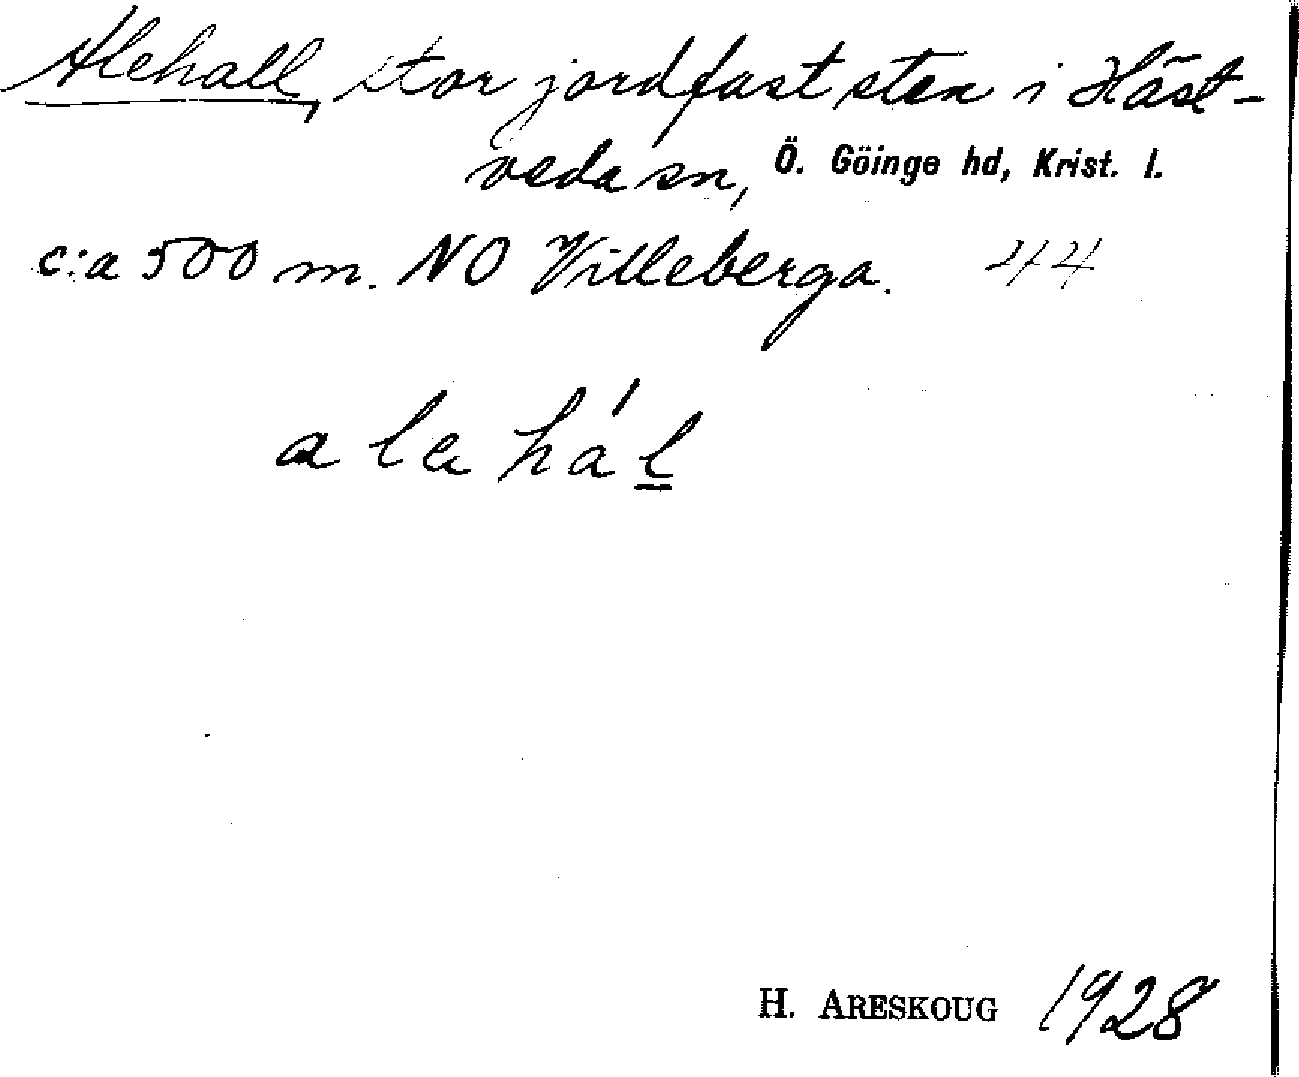 Alehall, stor jordfast sten i Häst-
veda sn, Ö. Göinge hd, Krist. l.
c:a 500 m. NO Villeberga. 44
a l a h á l
H. ARESKOUG 1928